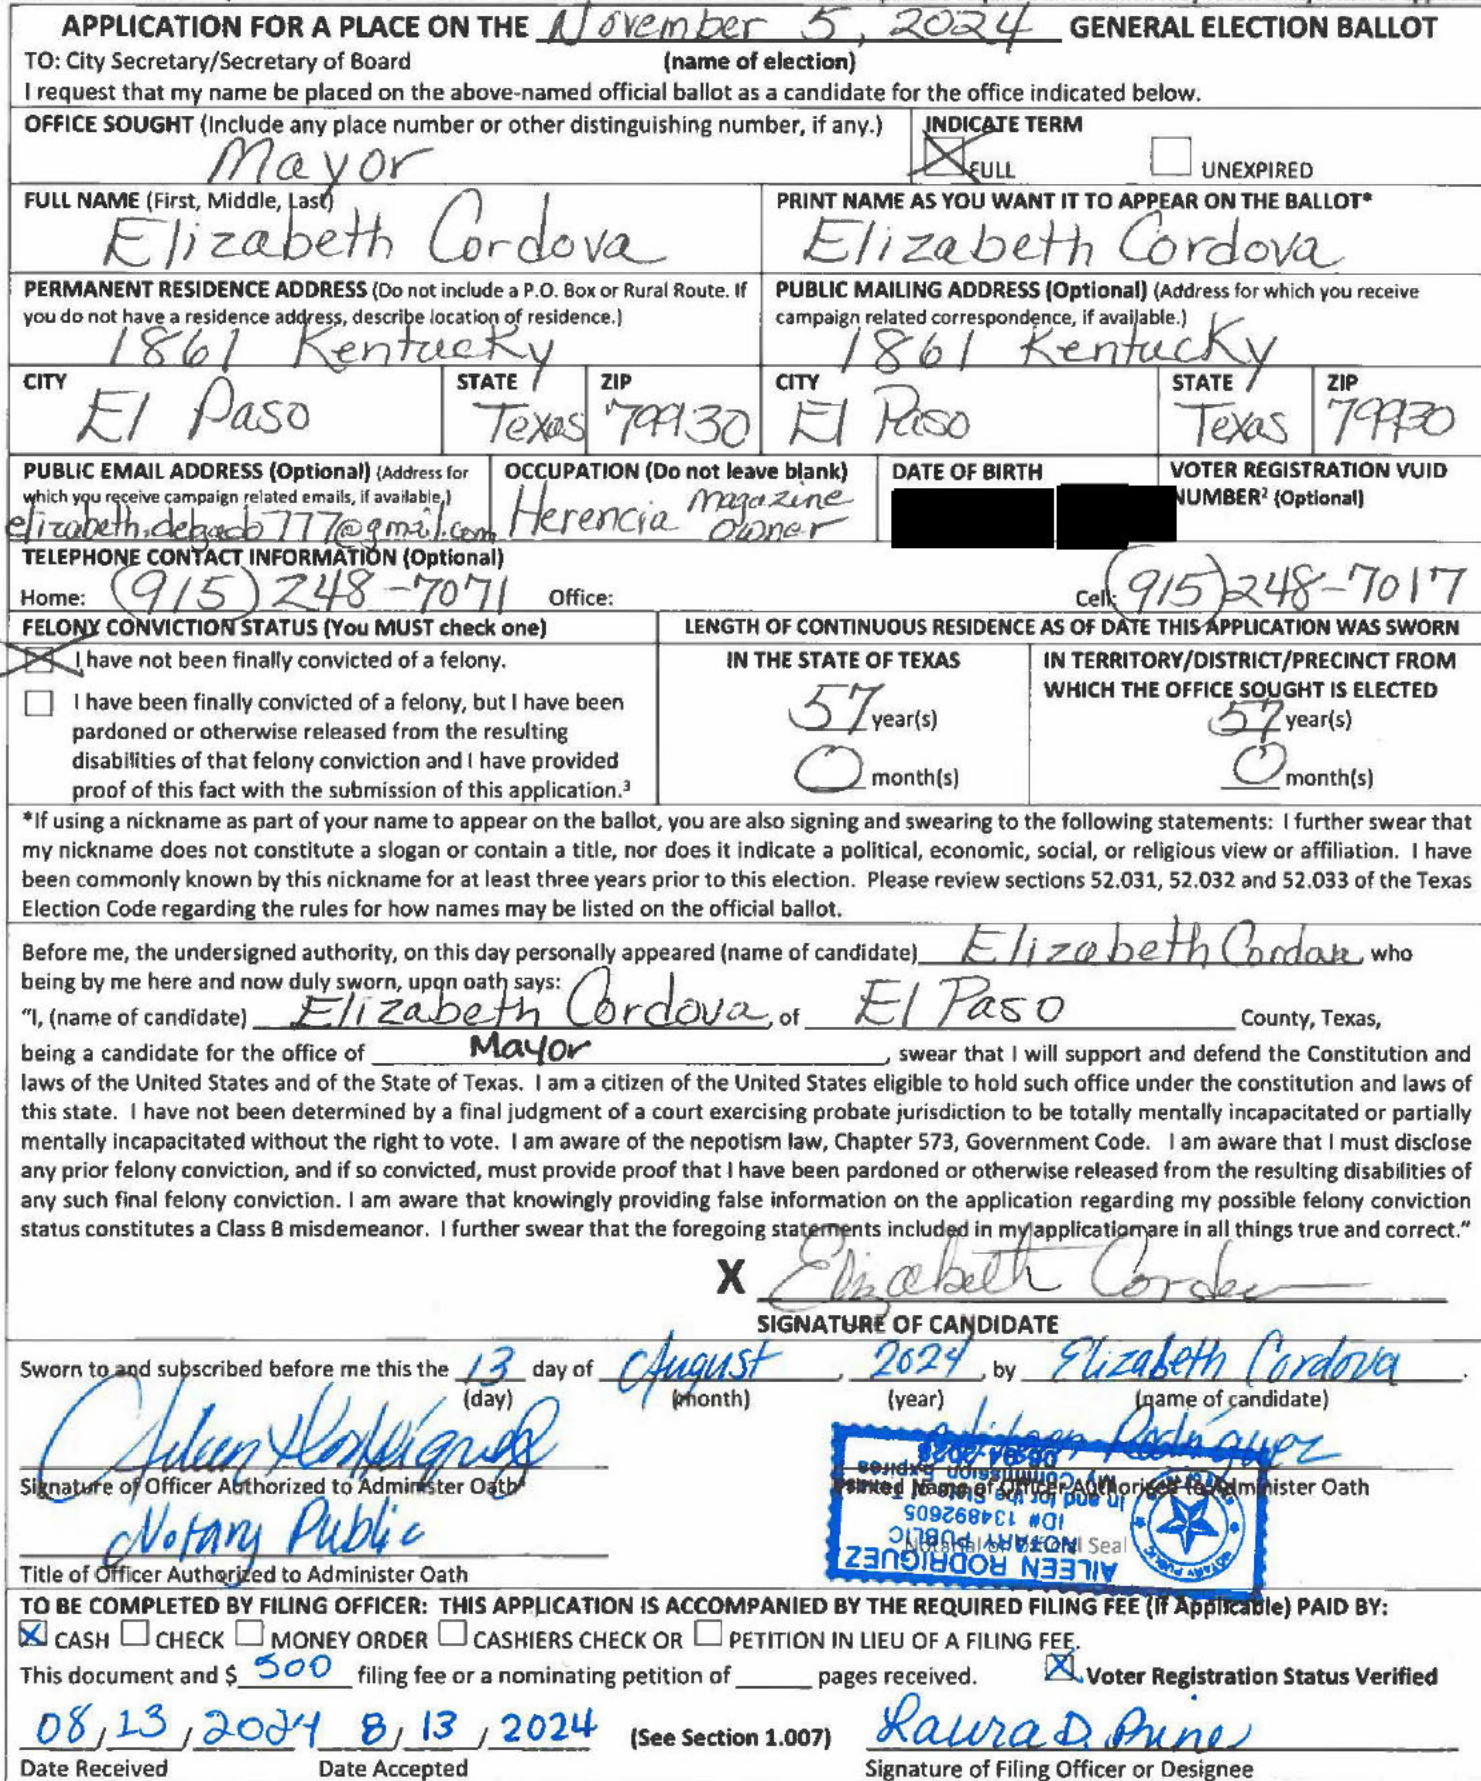 APPLICATION FOR A PLACE ON THE November 5, 2024 GENERAL ELECTION BALLOT
TO: City Secretary/Secretary of Board (name of election)
I request that my name be placed on the above-named official ballot as a candidate for the office indicated below.
OFFICE SOUGHT (Include any place number or other distinguishing number, if any.)
Mayor
INDICATE TERM
FULL UNEXPIRED
FULL NAME (First, Middle, Last)
Elizabeth Cordova
PRINT NAME AS YOU WANT IT TO APPEAR ON THE BALLOT*
Elizabeth Cordova
PERMANENT RESIDENCE ADDRESS (Do not include a P.O. Box or Rural Route. If
you do not have a residence address, describe location of residence.)
1861 Kentucky
PUBLIC MAILING ADDRESS (Optional) (Address for which you receive
campaign related correspondence, if available.)
1861 Kentucky
CITY STATE ZIP CITY STATE ZIP
El Paso Texas 79930 El Paso Texas 79930
PUBLIC EMAIL ADDRESS (Optional) (Address for
which you receive campaign related emails, if available.)
elizabeth.delgado777@gmail.com
OCCUPATION (Do not leave blank)
Herencia Magazine
Owner
DATE OF BIRTH
VOTER REGISTRATION VUID
NUMBER² (Optional)
TELEPHONE CONTACT INFORMATION (Optional)
Home: (915) 248-7071 Office: Cell: (915) 248-7017
FELONY CONVICTION STATUS (You MUST check one)
I have not been finally convicted of a felony.
I have been finally convicted of a felony, but I have been
pardoned or otherwise released from the resulting
disabilities of that felony conviction and I have provided
proof of this fact with the submission of this application.³
LENGTH OF CONTINUOUS RESIDENCE AS OF DATE THIS APPLICATION WAS SWORN
IN THE STATE OF TEXAS
57 year(s)
0 month(s)
IN TERRITORY/DISTRICT/PRECINCT FROM
WHICH THE OFFICE SOUGHT IS ELECTED
57 year(s)
0 month(s)
*If using a nickname as part of your name to appear on the ballot, you are also signing and swearing to the following statements: I further swear that
my nickname does not constitute a slogan or contain a title, nor does it indicate a political, economic, social, or religious view or affiliation. I have
been commonly known by this nickname for at least three years prior to this election. Please review sections 52.031, 52.032 and 52.033 of the Texas
Election Code regarding the rules for how names may be listed on the official ballot.
Before me, the undersigned authority, on this day personally appeared (name of candidate) Elizabeth Cordova, who
being by me here and now duly sworn, upon oath says:
"I, (name of candidate) Elizabeth Cordova, of El Paso County, Texas,
being a candidate for the office of Mayor, swear that I will support and defend the Constitution and
laws of the United States and of the State of Texas. I am a citizen of the United States eligible to hold such office under the constitution and laws of
this state. I have not been determined by a final judgment of a court exercising probate jurisdiction to be totally mentally incapacitated or partially
mentally incapacitated without the right to vote. I am aware of the nepotism law, Chapter 573, Government Code. I am aware that I must disclose
any prior felony conviction, and if so convicted, must provide proof that I have been pardoned or otherwise released from the resulting disabilities of
any such final felony conviction. I am aware that knowingly providing false information on the application regarding my possible felony conviction
status constitutes a Class B misdemeanor. I further swear that the foregoing statements included in my application are in all things true and correct."
X Elizabeth Cordova
SIGNATURE OF CANDIDATE
Sworn to and subscribed before me this the 13 day of August, 2024, by Elizabeth Cordova.
(day) (month) (year) (name of candidate)
Aileen Rodriguez Aileen Rodriguez
Signature of Officer Authorized to Administer Oath Printed Name of Officer Authorized to Administer Oath
Notary Public
Title of Officer Authorized to Administer Oath
Notarial or Official Seal
AILEEN RODRIGUEZ
NOTARY PUBLIC
ID# 134892605
In and for the State of
My Commission Expires
TO BE COMPLETED BY FILING OFFICER: THIS APPLICATION IS ACCOMPANIED BY THE REQUIRED FILING FEE (If Applicable) PAID BY:
CASH CHECK MONEY ORDER CASHIERS CHECK OR PETITION IN LIEU OF A FILING FEE.
This document and $ 500 filing fee or a nominating petition of pages received. Voter Registration Status Verified
08/13/2024 8/13/2024 (See Section 1.007) Laura D. Prine
Date Received Date Accepted Signature of Filing Officer or Designee